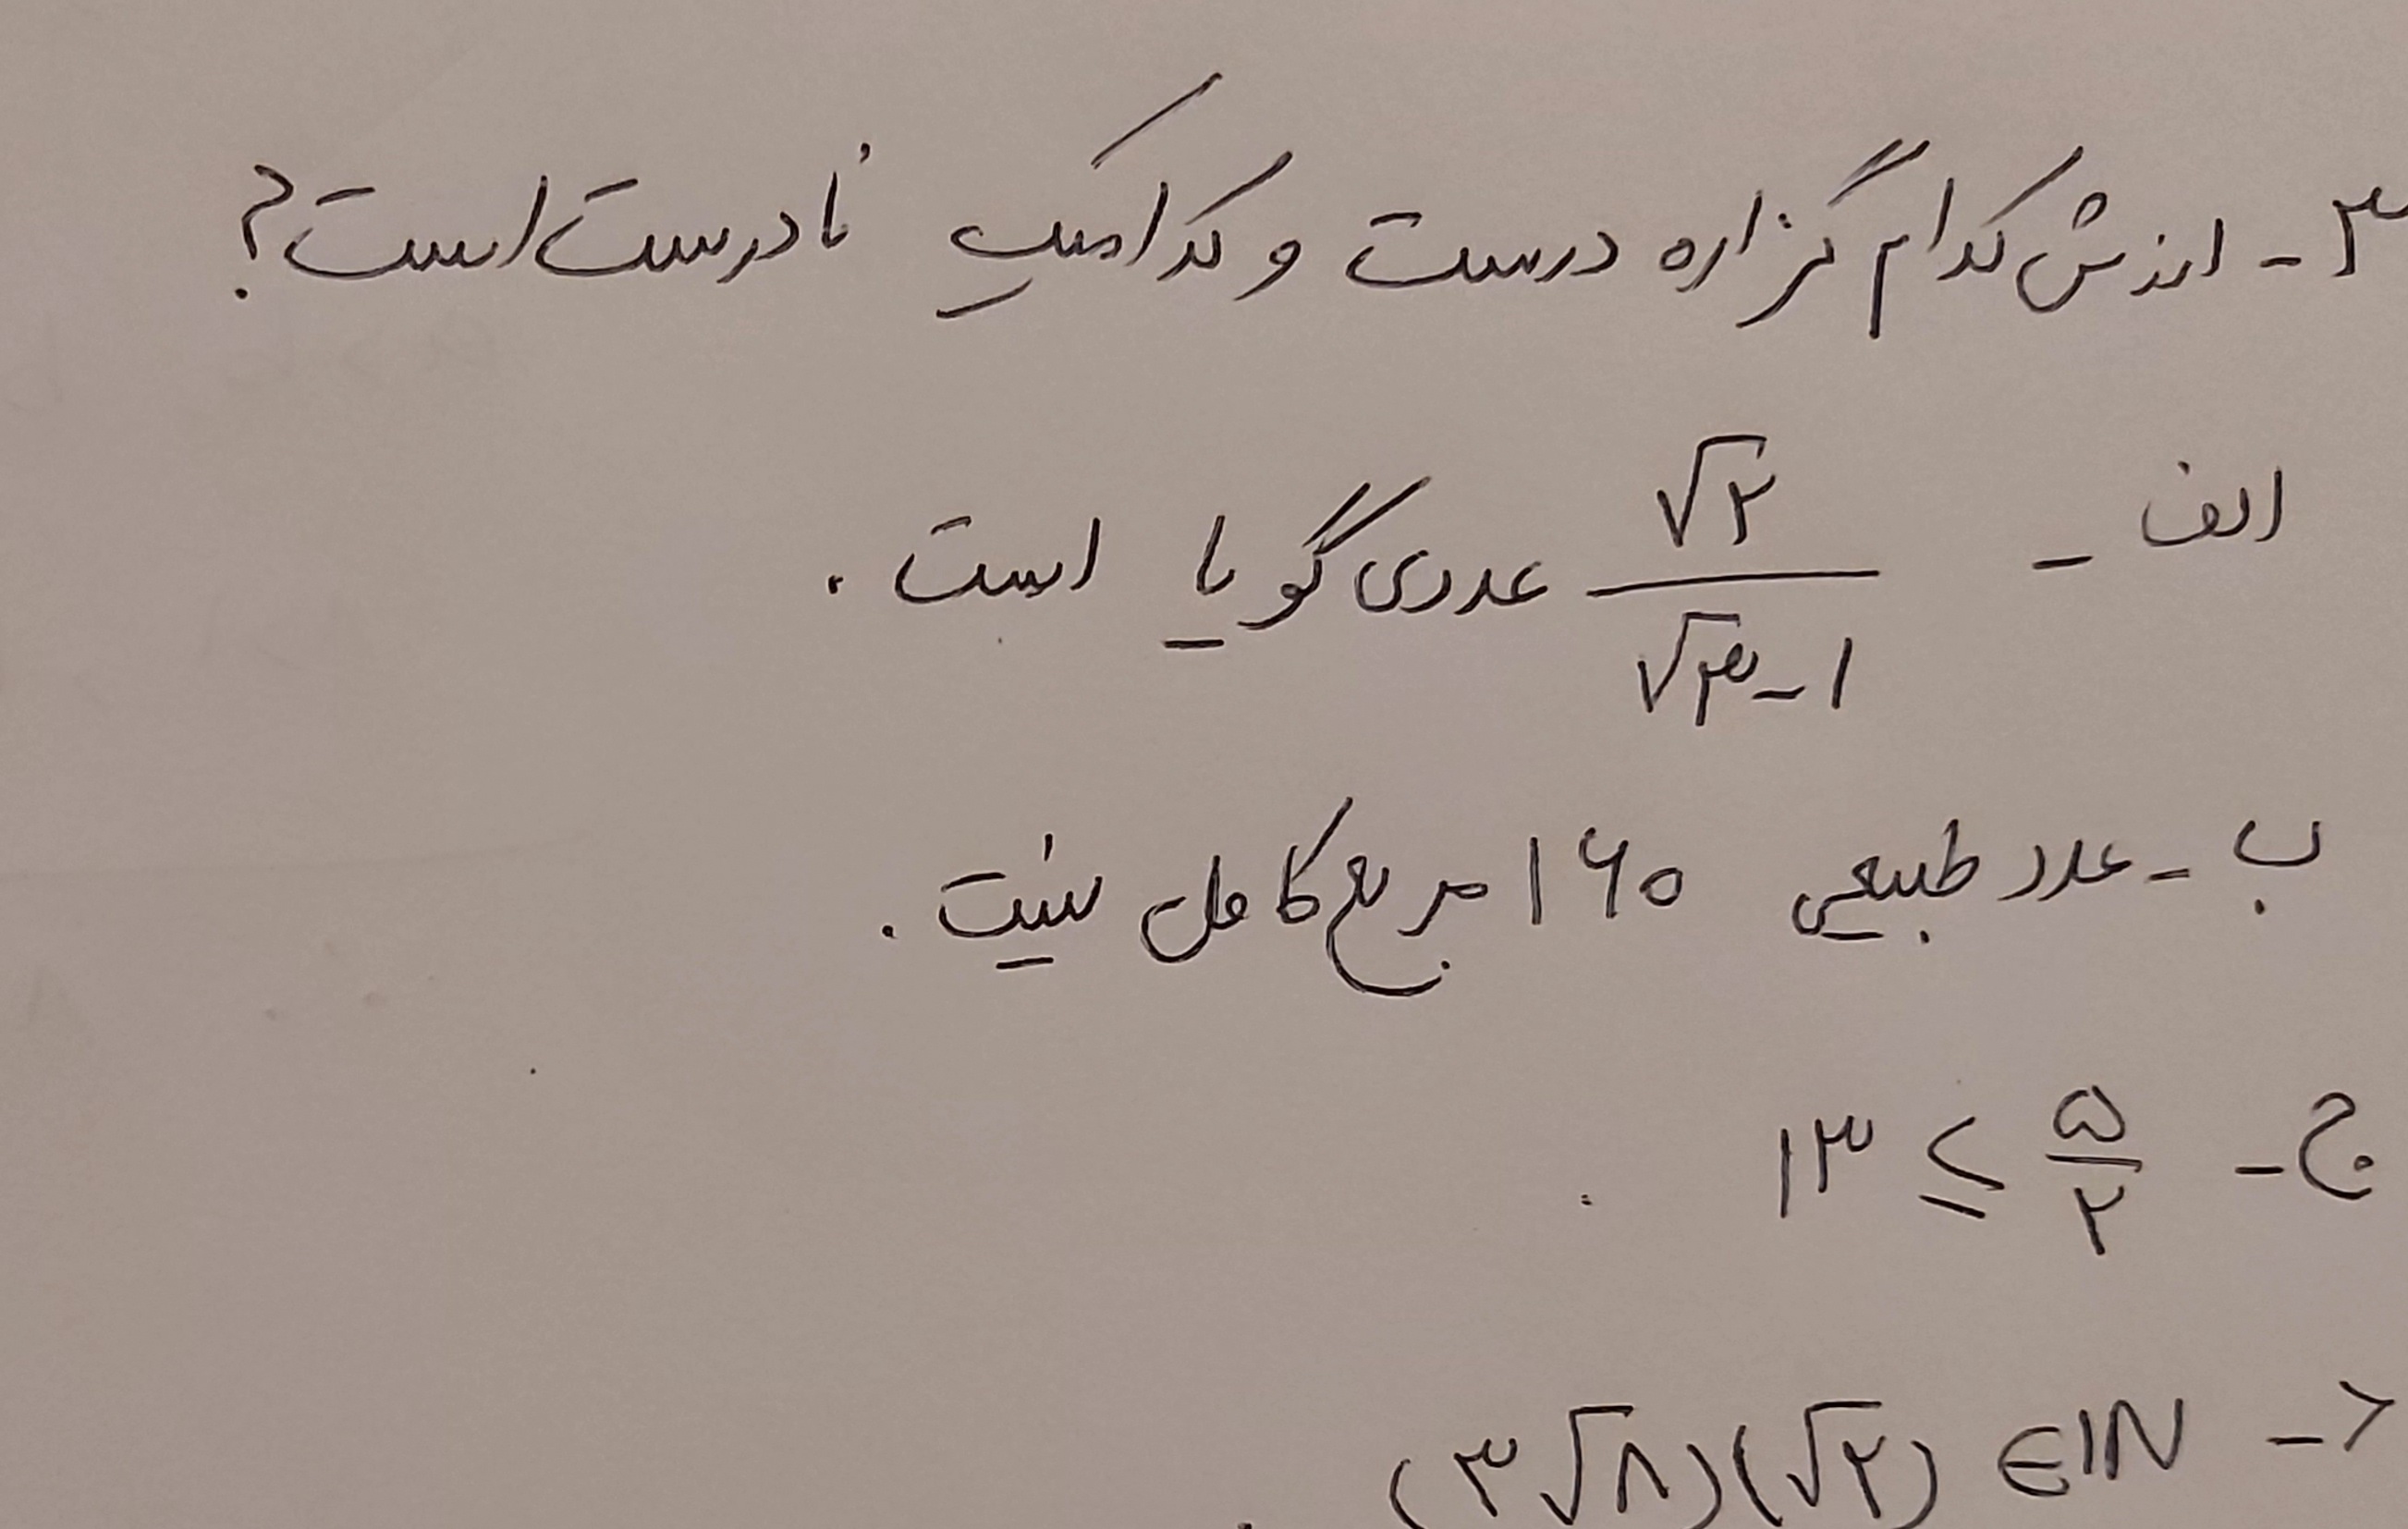 ۳- ارزش کدام گزاره درست و کدامیک نادرست است؟
الف - √۲ / √۳-۱ عددی گویا است .
ب - عدد طبیعی ۱۶۰ مربع کامل نیست .
ج - ۱۳ ≤ ۵/۲ .
د - (۳√۸)(√۲) ∈ IN .